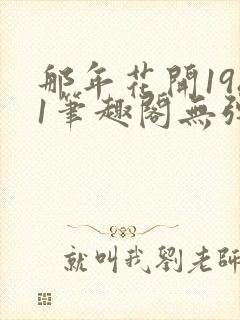 那年花開19
1筆趣閣無
就叫我劉老師